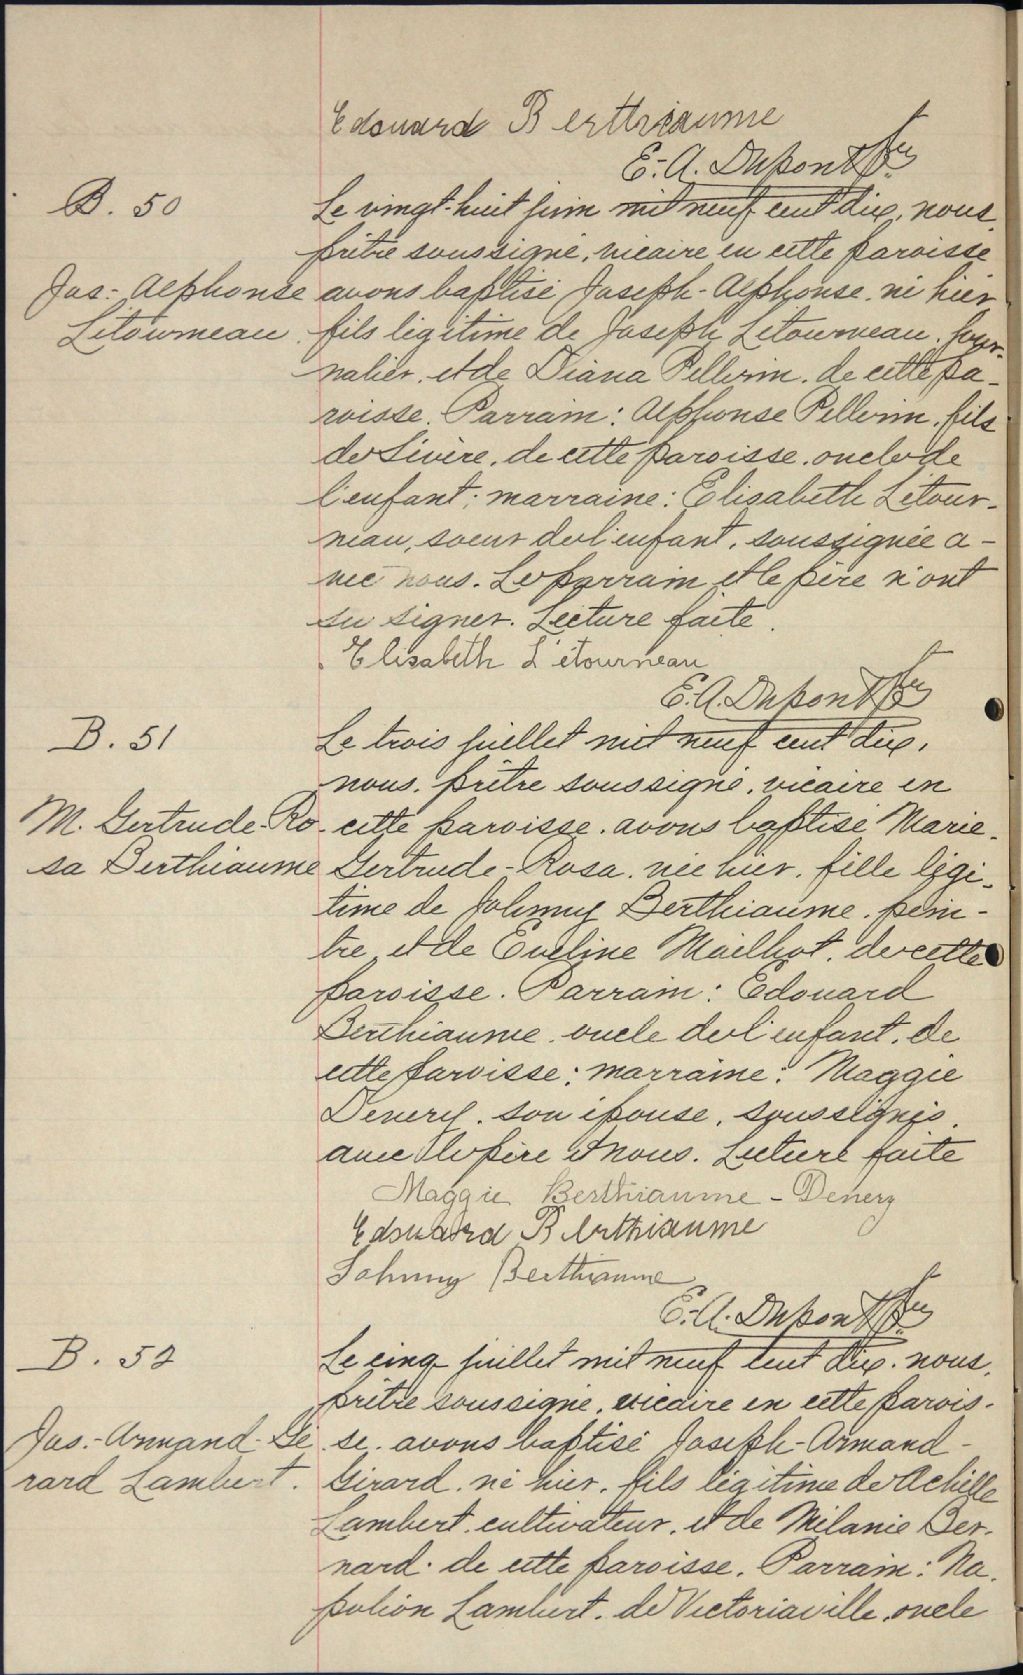 Edouard Berthiaume
E.-A. Dupont Ptre
B. 50
Le vingt-huit juin mil neuf cent dix, nous,
prêtre soussigné, vicaire en cette paroisse
Jos.-Alphonse
avons baptisé Joseph-Alphonse, né hier,
Létourneau.
fils légitime de Joseph Létourneau, jour-
nalier, et de Diana Pellerin, de cette pa-
roisse. Parrain: Alphonse Pellerin, fils
de Sévère, de cette paroisse, oncle de
l'enfant; marraine: Elisabeth Létour-
neau, soeur de l'enfant, soussignée a-
vec nous. Le parrain et le père n'ont
su signer. Lecture faite.
Elisabeth Létourneau
E.A. Dupont Ptre
B. 51
Le trois juillet mil neuf cent dix,
nous, prêtre soussigné, vicaire en
M. Gertrude-Ro-
cette paroisse, avons baptisé Marie-
sa Berthiaume
Gertrude-Rosa, née hier, fille légi-
time de Johnny Berthiaume, pein-
tre, et de Eveline Mailhot, de cette
paroisse. Parrain: Edouard
Berthiaume, oncle de l'enfant, de
cette paroisse; marraine: Maggie
Denery, son épouse, soussignés
avec le père et nous. Lecture faite
Maggie Berthiaume-Denery
Edouard Berthiaume
Johnny Berthiaume
E.-A. Dupont Ptre
B. 52
Le cinq juillet mil neuf cent dix, nous,
prêtre soussigné, vicaire en cette parois-
Jos.-Armand-Gé
se, avons baptisé Joseph-Armand-
rard Lambert.
Gérard, né hier, fils légitime de Achille
Lambert, cultivateur, et de Mélanie Ber-
nard, de cette paroisse. Parrain: Na-
poléon Lambert, de Victoriaville, oncle